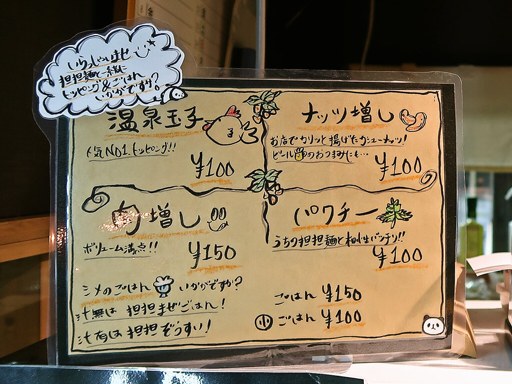 いらっしゃいませ
担担麺と一緒に
トッピング&ごはん
いかがですか?
温泉玉子
人気NO1トッピング!!
¥100
ナッツ増し
お店でカリッと揚げたカシューナッツ!
ビールのおつまみにも…
¥100
肉増し
ボリューム満点!!
¥150
パクチー
うちの担担麺と相性バッチリ!!
¥100
シメのごはんいかがですか?
汁無は 担担まぜごはん!
汁有は 担担ぞうすい!
ごはん ¥150
小ごはん ¥100